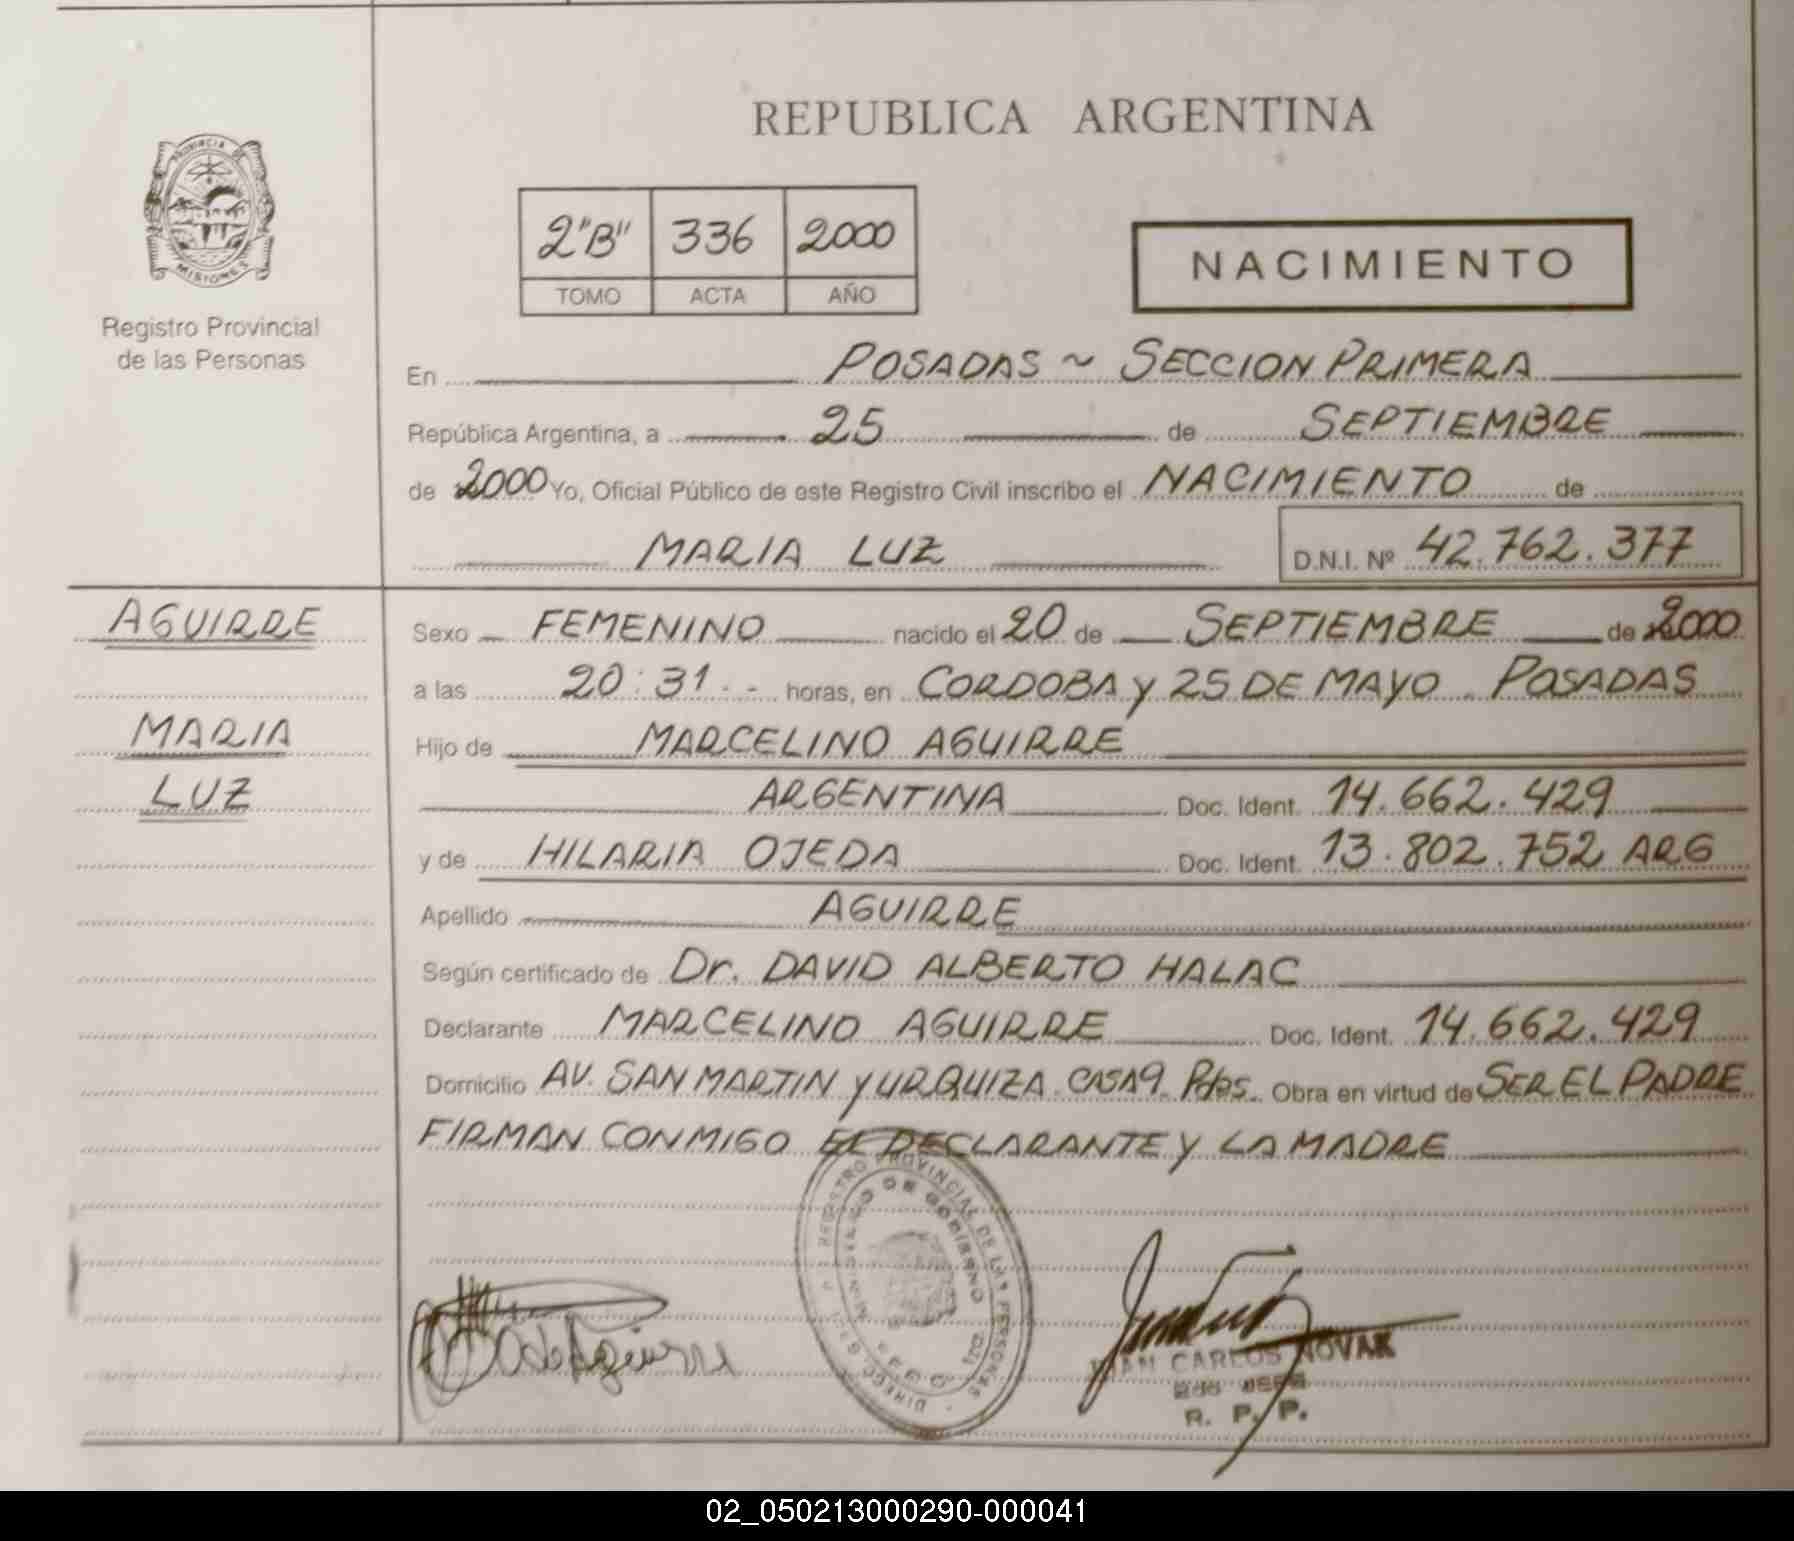 REPUBLICA ARGENTINA
PROVINCIA DE
MISIONES
Registro Provincial
de las Personas
2"B" 336 2000
TOMO ACTA AÑO
NACIMIENTO
En POSADAS ~ SECCION PRIMERA
República Argentina, a 25 de SEPTIEMBRE
de 2000 Yo, Oficial Público de este Registro Civil inscribo el NACIMIENTO de
MARIA LUZ D.N.I. Nº 42.762.377
AGUIRRE
MARIA
LUZ
Sexo FEMENINO nacido el 20 de SEPTIEMBRE de 2000
a las 20:31 horas, en CORDOBA y 25 DE MAYO POSADAS
Hijo de MARCELINO AGUIRRE
ARGENTINA Doc. Ident. 14.662.429
y de HILARIA OJEDA Doc. Ident. 13.802.752 ARG
Apellido AGUIRRE
Según certificado de Dr. DAVID ALBERTO HALAC
Declarante MARCELINO AGUIRRE Doc. Ident. 14.662.429
Domicilio AV. SAN MARTIN y URQUIZA CASA 9 Pdas. Obra en virtud de SER EL PADRE
FIRMAN CONMIGO EL DECLARANTE y LA MADRE
REGISTRO PROVINCIAL DE LAS PERSONAS
DE GOBIERNO
de Aguirre
JUAN CARLOS NOVAK
2do JEFE
R. P. P.
02_050213000290-000041